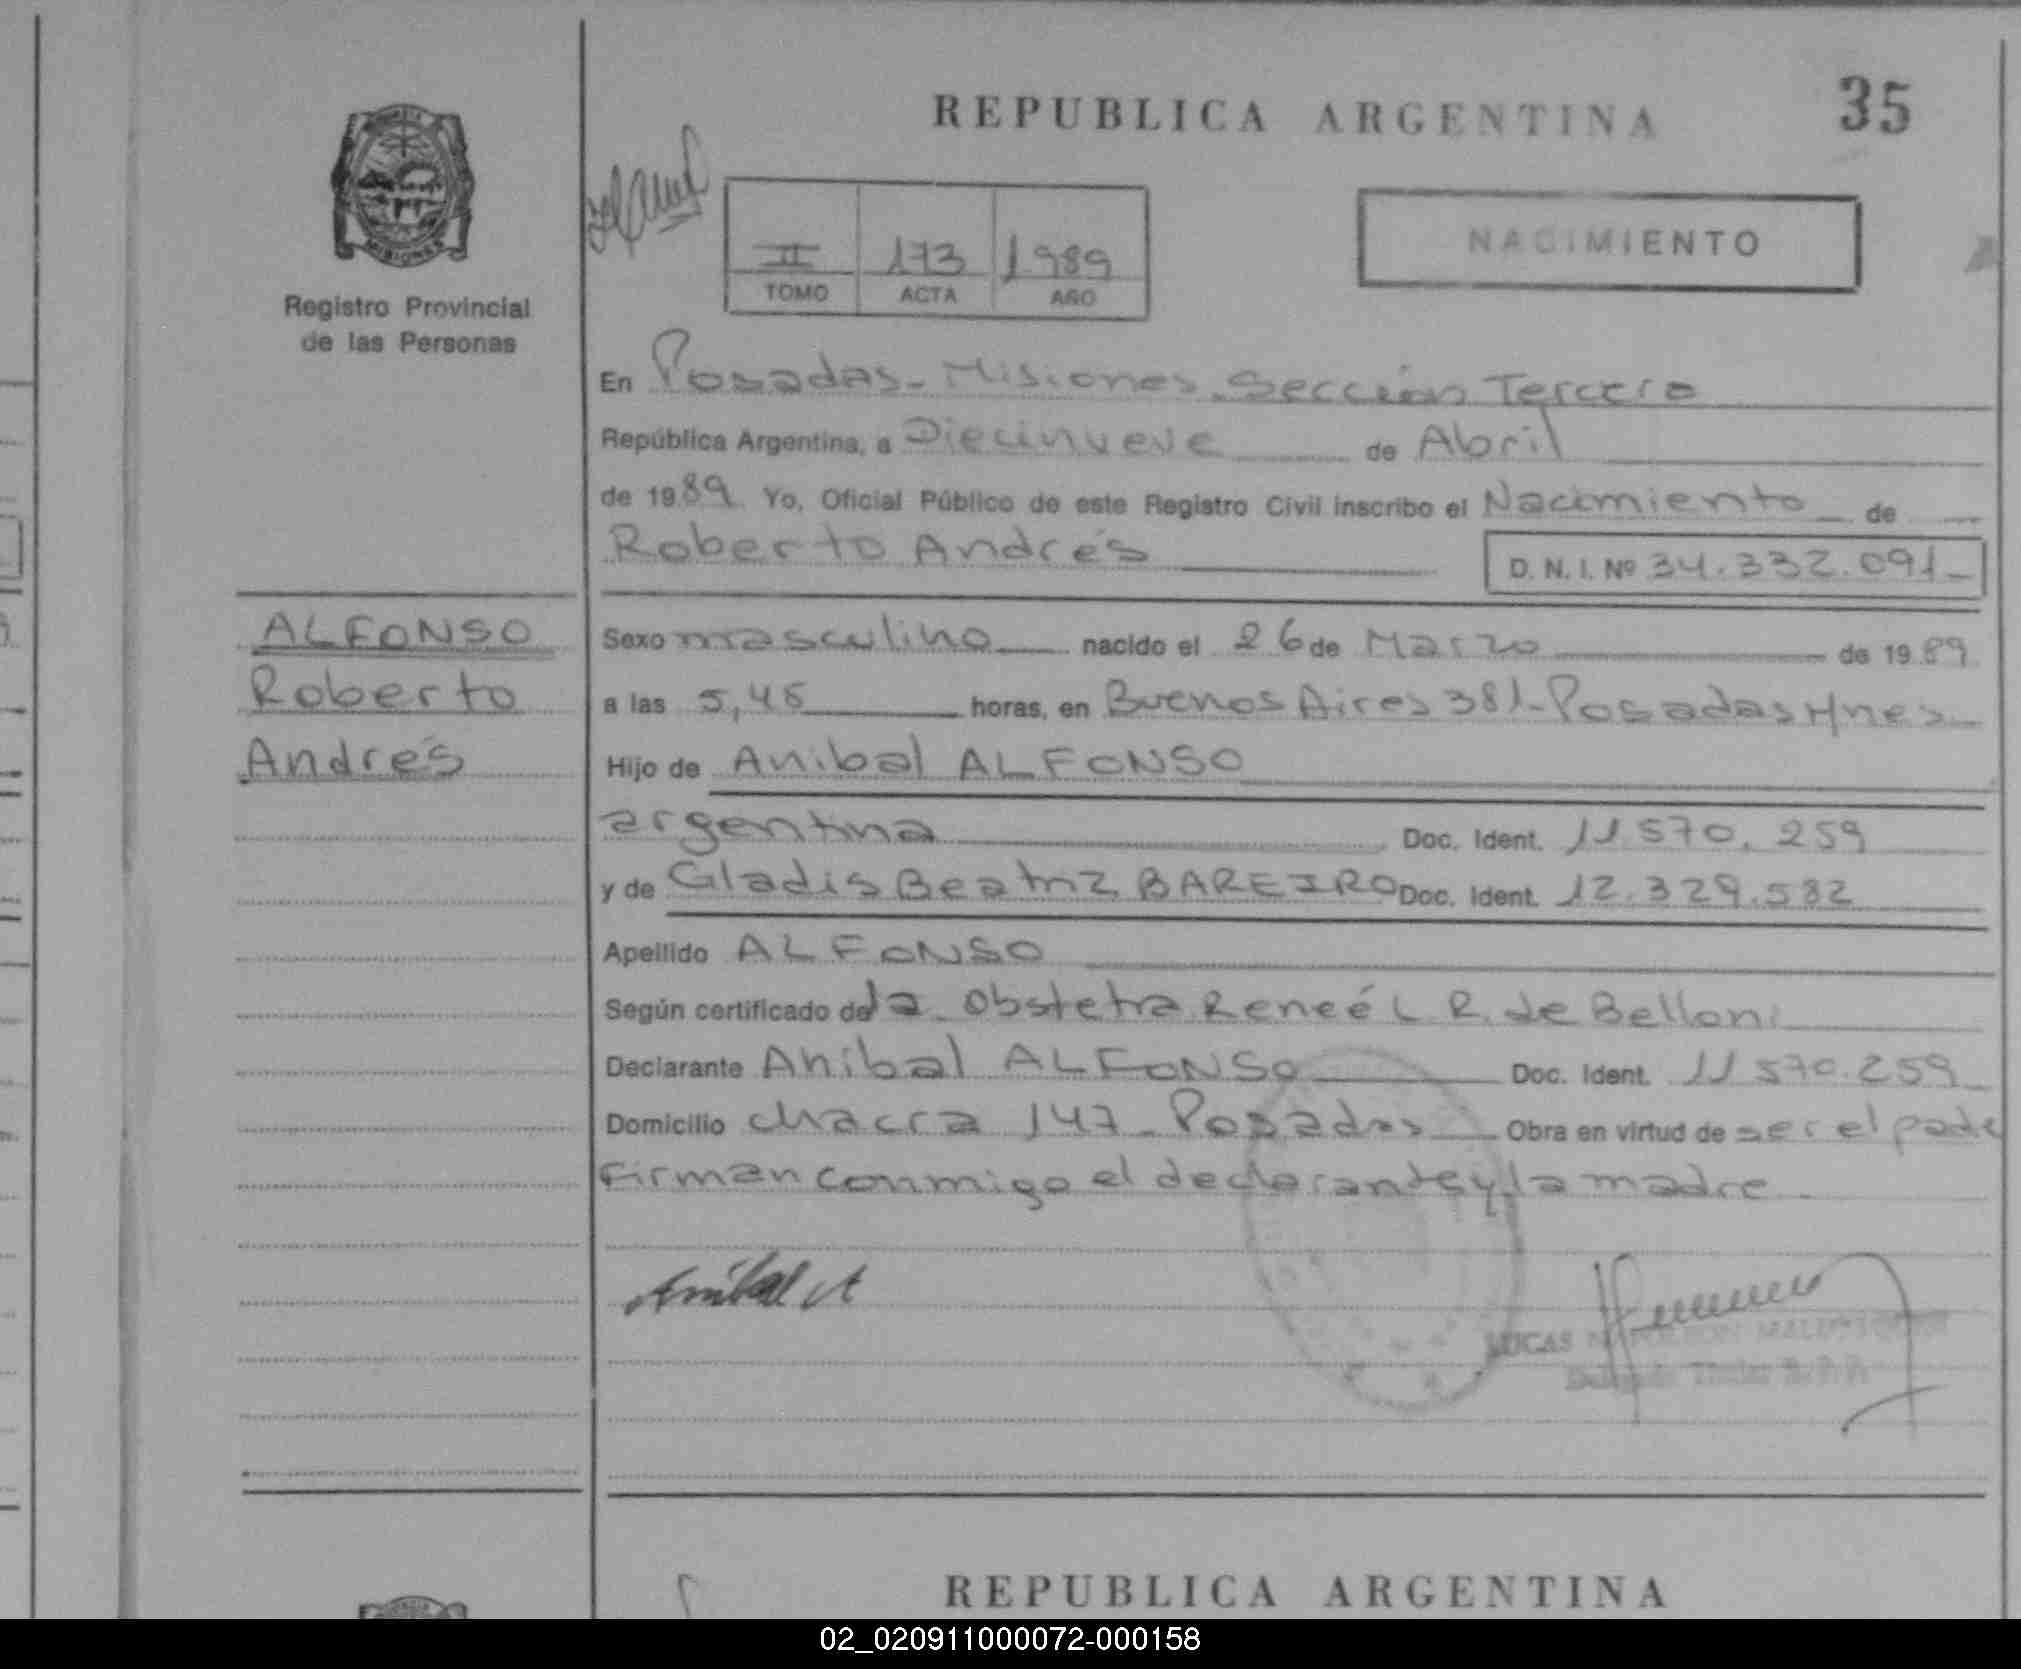 REPUBLICA ARGENTINA
35
MISIONES
Registro Provincial
de las Personas
II 173 1989
TOMO ACTA AÑO
NACIMIENTO
En Posadas - Misiones - Sección Tercera
República Argentina, a Diecinueve de Abril
de 1989 Yo, Oficial Público de este Registro Civil inscribo el Nacimiento de
Roberto Andrés
D. N. I. Nº 34.332.091-
ALFONSO
Roberto
Andrés
Sexo masculino nacido el 26 de Marzo de 1989
a las 5,45 horas, en Buenos Aires 381- Posadas Mnes-
Hijo de Anibal ALFONSO
argentina Doc. Ident. 11.570.259
y de Gladis Beatriz BAREIRO Doc. Ident. 12.329.582
Apellido ALFONSO
Según certificado de la Obstetra Reneé L R. de Belloni
Declarante Anibal ALFONSO Doc. Ident. 11.570.259
Domicilio chacra 147 - Posadas Obra en virtud de ser el padre
Firman conmigo el declarante y la madre.
Anibal A
LUCAS
REPUBLICA ARGENTINA
02_020911000072-000158